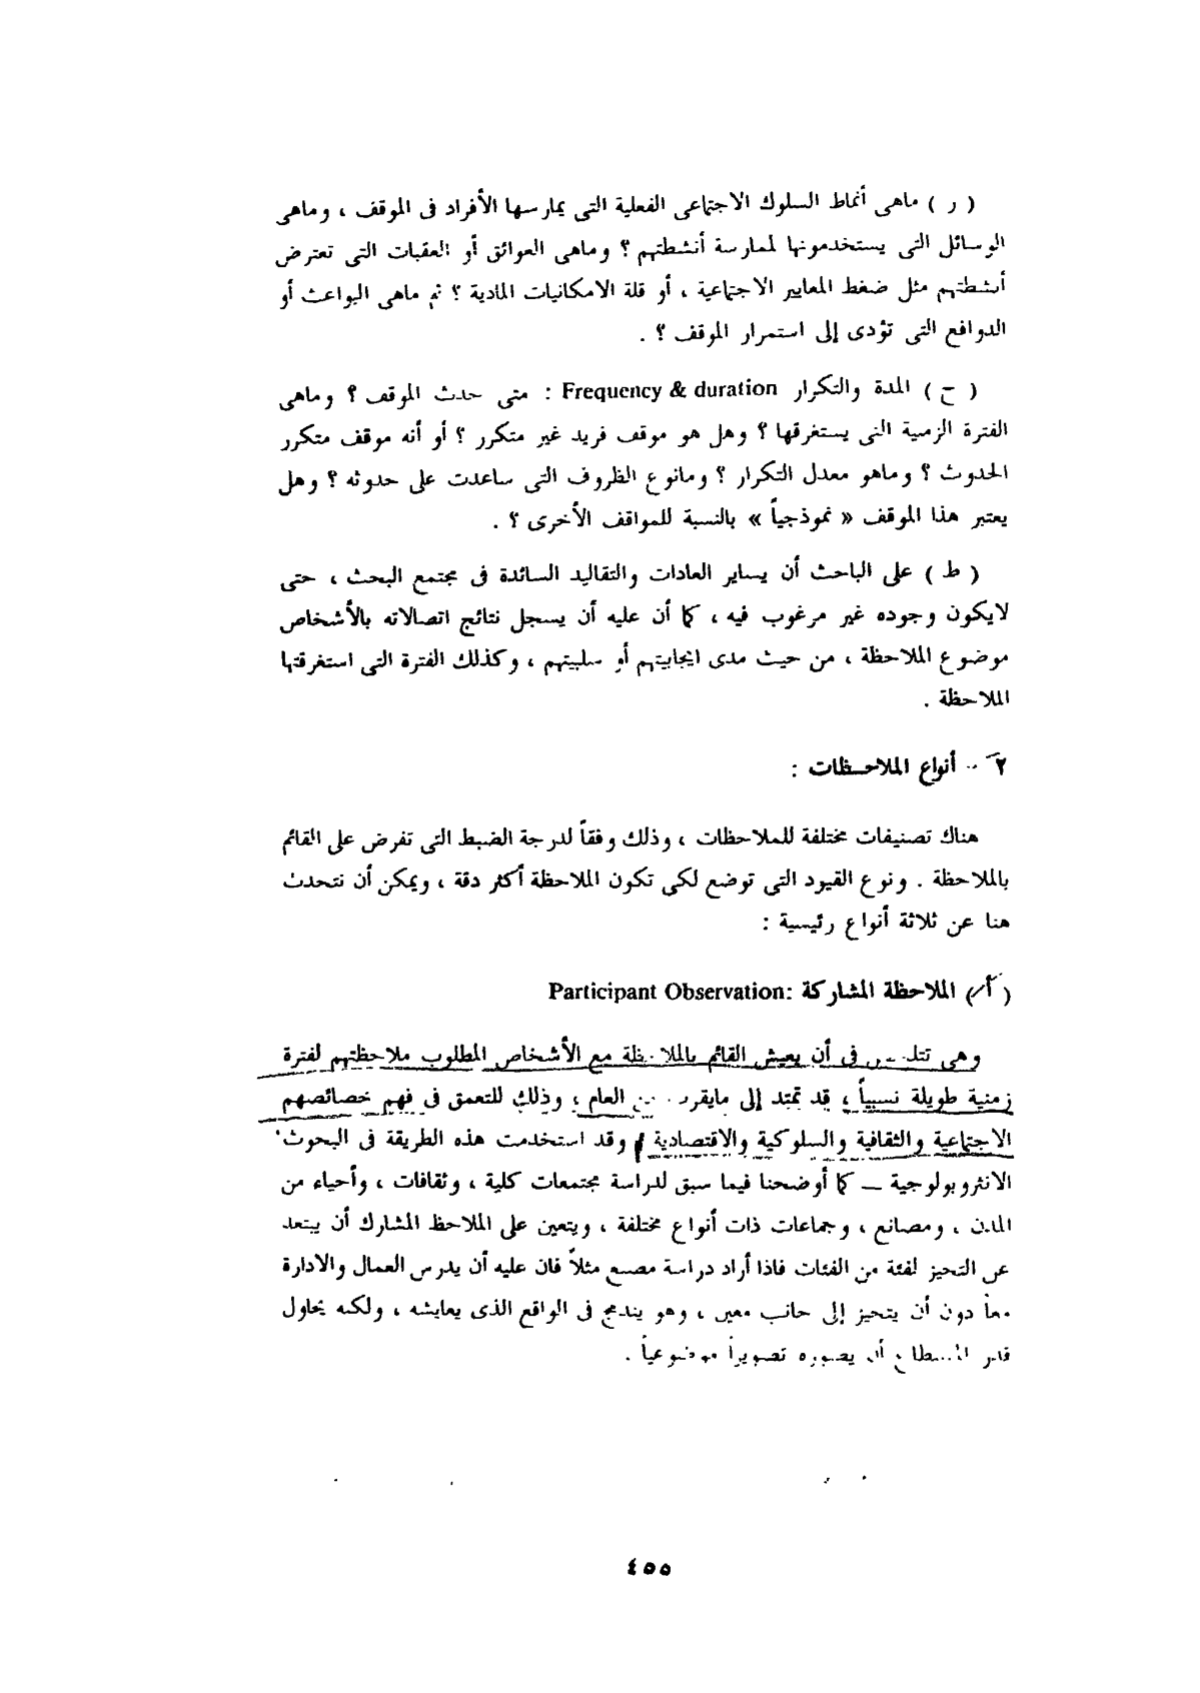 ( ر ) ماهى أنماط السلوك الاجتماعى الفعلية التى يمارسها الأفراد فى الموقف ، وماهى
الوسائل التى يستخدمونها لممارسة أنشطتهم ؟ وماهى العوائق أو العقبات التى تعترض
أنشطتهم مثل ضغط المعايير الاجتماعية ، أو قلة الامكانيات المادية ؟ ثم ماهى البواعث أو
الدوافع التى تؤدى إلى استمرار الموقف ؟ .
( ح ) المدة والتكرار Frequency & duration : متى حدث الموقف ؟ وماهى
الفترة الزمنية التى يستغرقها ؟ وهل هو موقف فريد غير متكرر ؟ أو أنه موقف متكرر
الحدوث ؟ وماهو معدل التكرار ؟ ومانوع الظروف التى ساعدت على حدوثه ؟ وهل
يعتبر هذا الموقف « نموذجياً » بالنسبة للمواقف الأخرى ؟ .
( ط ) على الباحث أن يساير العادات والتقاليد السائدة فى مجتمع البحث ، حتى
لايكون وجوده غير مرغوب فيه ، كما أن عليه أن يسجل نتائج اتصالاته بالأشخاص
موضوع الملاحظة ، من حيث مدى ايجابيتهم أو سلبيتهم ، وكذلك الفترة التى استغرقتها
الملاحظة .
٢ - أنواع الملاحظات :
هناك تصنيفات مختلفة للملاحظات ، وذلك وفقاً لدرجة الضبط التى تفرض على القائم
بالملاحظة . ونوع القيود التى توضع لكى تكون الملاحظة أكثر دقة ، ويمكن أن نتحدث
هنا عن ثلاثة أنواع رئيسية :
( أ ) الملاحظة المشاركة :Participant Observation
وهى فى أن يعيش القائم بالملاحظة مع الأشخاص المطلوب ملاحظتهم لفترة
زمنية طويلة نسبياً ، قد تمتد إلى مايقرب من العام ، وذلك للتعمق فى فهم خصائصهم
الاجتماعية والثقافية والسلوكية والاقتصادية ، وقد استخدمت هذه الطريقة فى البحوث
الانثروبولوجية ــ كما أوضحنا فيما سبق لدراسة مجتمعات كلية ، وثقافات ، وأحياء من
المدن ، ومصانع ، وجماعات ذات أنواع مختلفة ، ويتعين على الملاحظ المشارك أن يبتعد
عن التحيز لفئة من الفئات فاذا أراد دراسة مصنع مثلاً فان عليه أن يدرس العمال والادارة
معاً دون أن يتحيز إلى جانب معين ، وهو يندمج فى الواقع الذى يعايشه ، ولكنه يحاول
قدر المستطاع أن يصوره تصويراً موضوعياً .
٤٥٥